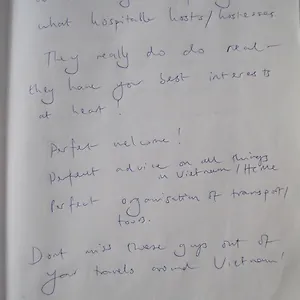 what hospitable hosts/hostesses
They really do do read –
they have your best interests
at heart!
Perfect welcome!
Perfect advice on all things
in Vietnam/Hue
Perfect organisation of transport/
tours.
Dont miss these guys out of
your travels around Vietnam!